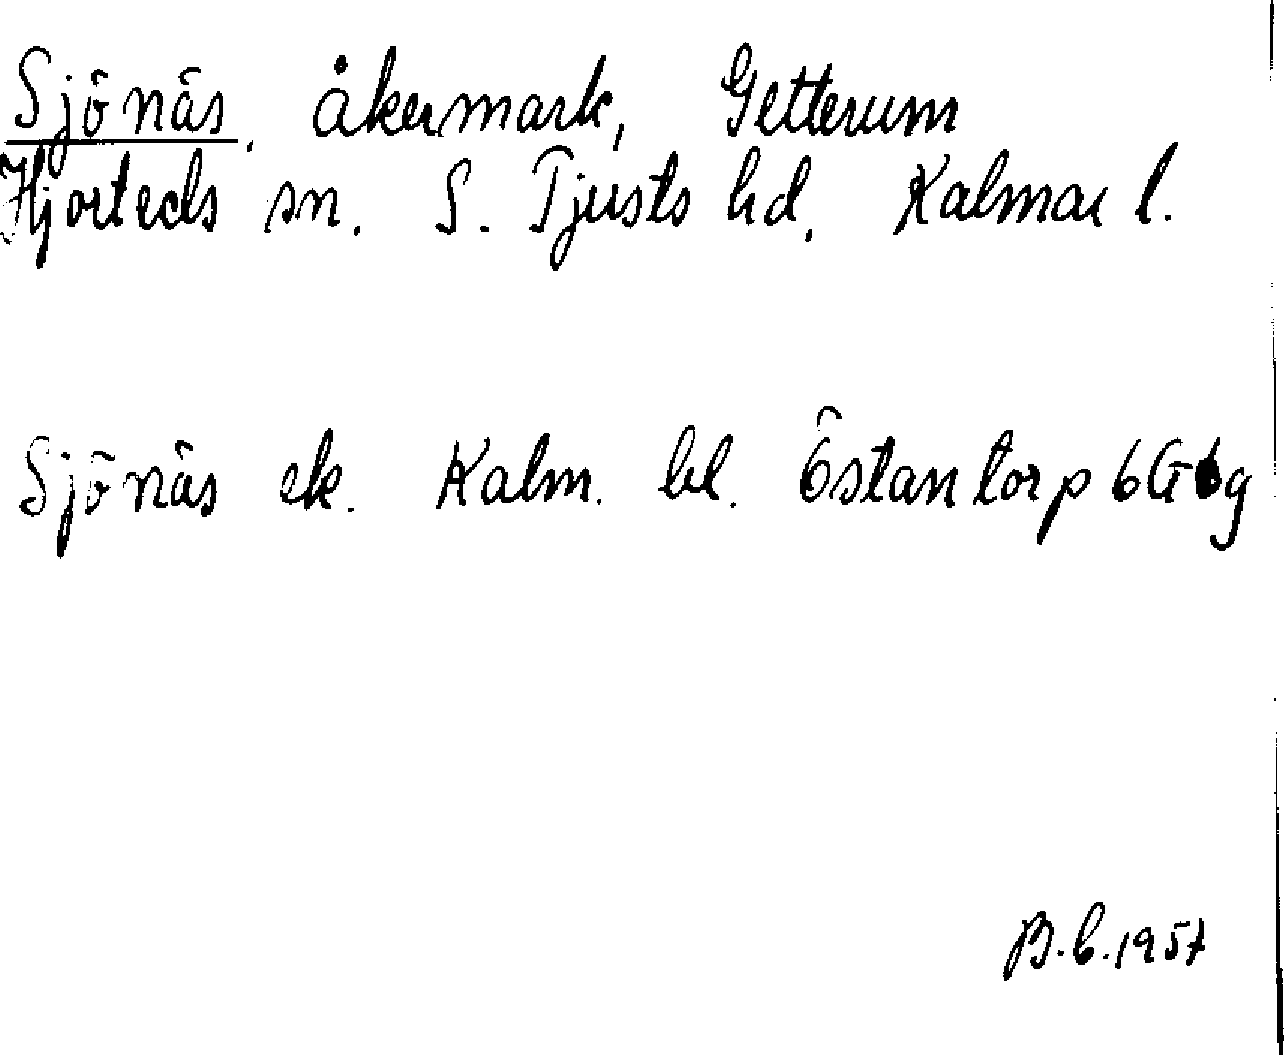 Sjönäs, åkermark, Getterum
Hjorteds sn. S. Tjusts hd, Kalmar l.
Sjönäs ek. Kalm. bl. Östantorp 6G6g
B.C. 1957